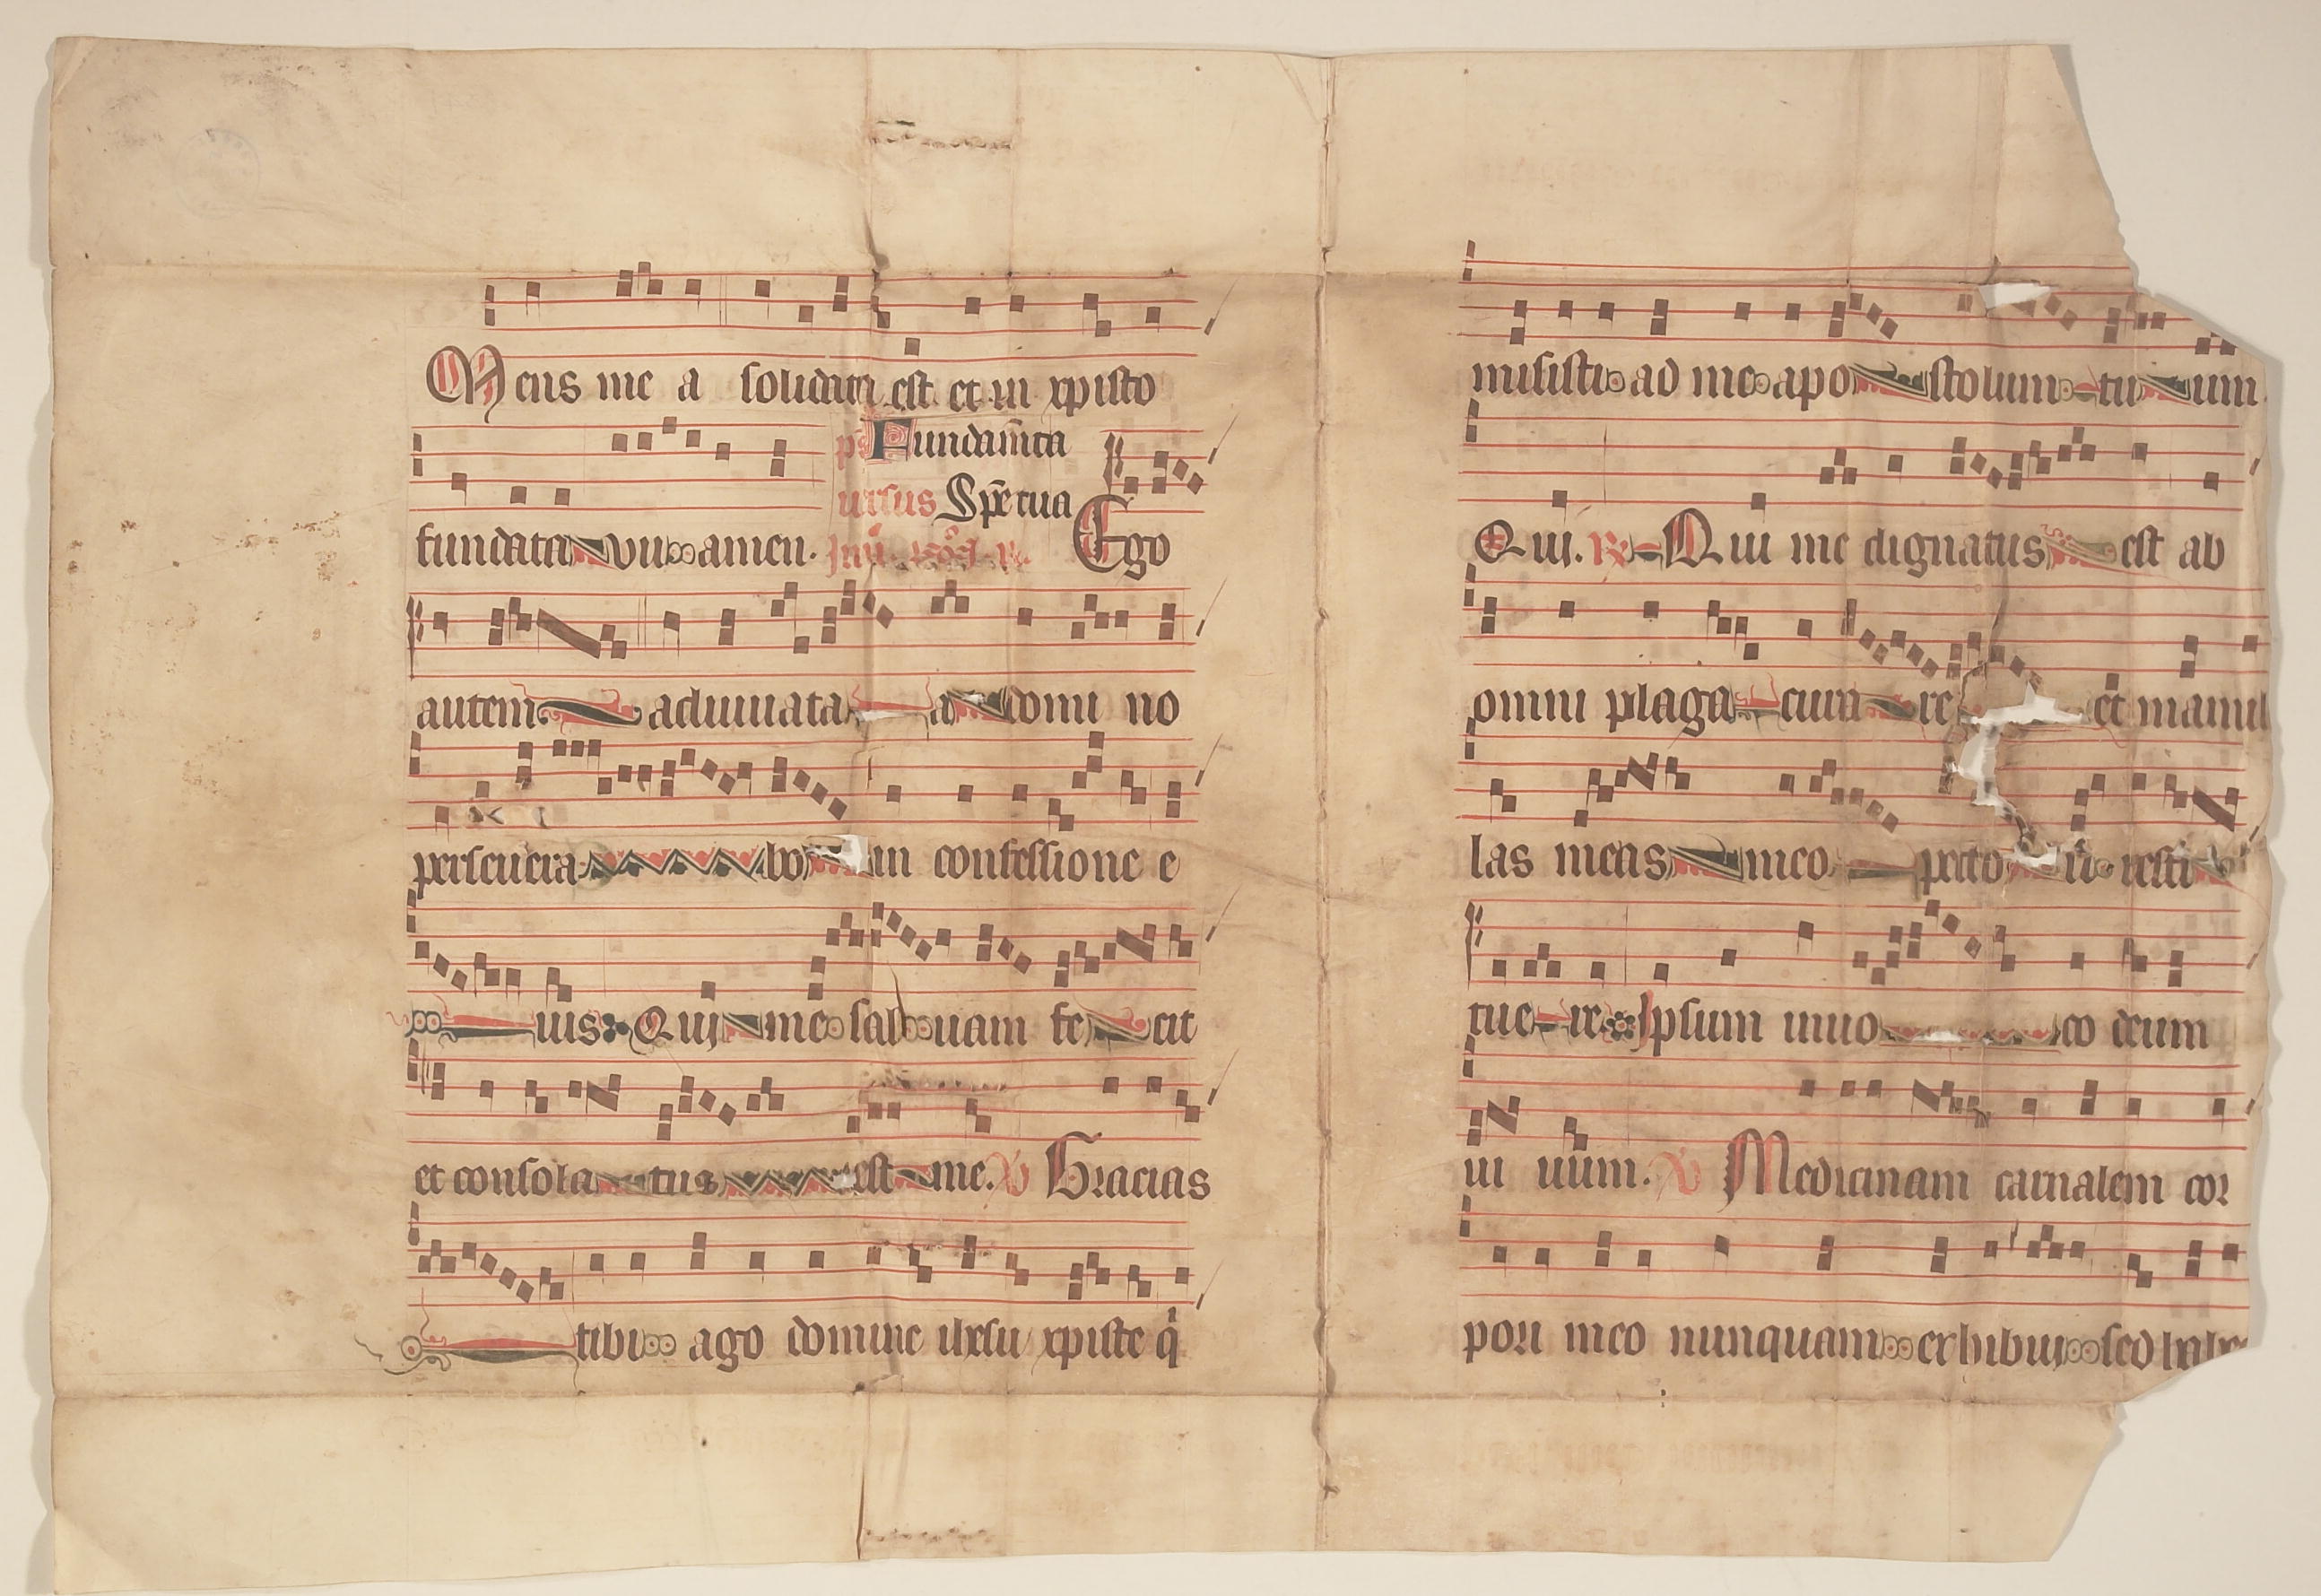 Mens me a solidata est et in xpisto
ps Fundam̄ta
ursus Spe tua
fundata vii amen. Ego
autem adiuuata a domi no
perseuera bo in confessione e
ius Qui me sal uam fe cit
et consola tus est me. V Gracias
tibi ago domine ihesu xpiste q
misisti ad me apo stolum tu um
Qui. R Qui me dignatus est ab
omni plaga cura re et mamil
las meas meo pecto ri resti
tue re Ipsum inuo co deum
ui uum. V Medicinam carnalem cor
pori meo nunquam exhibui sed habe